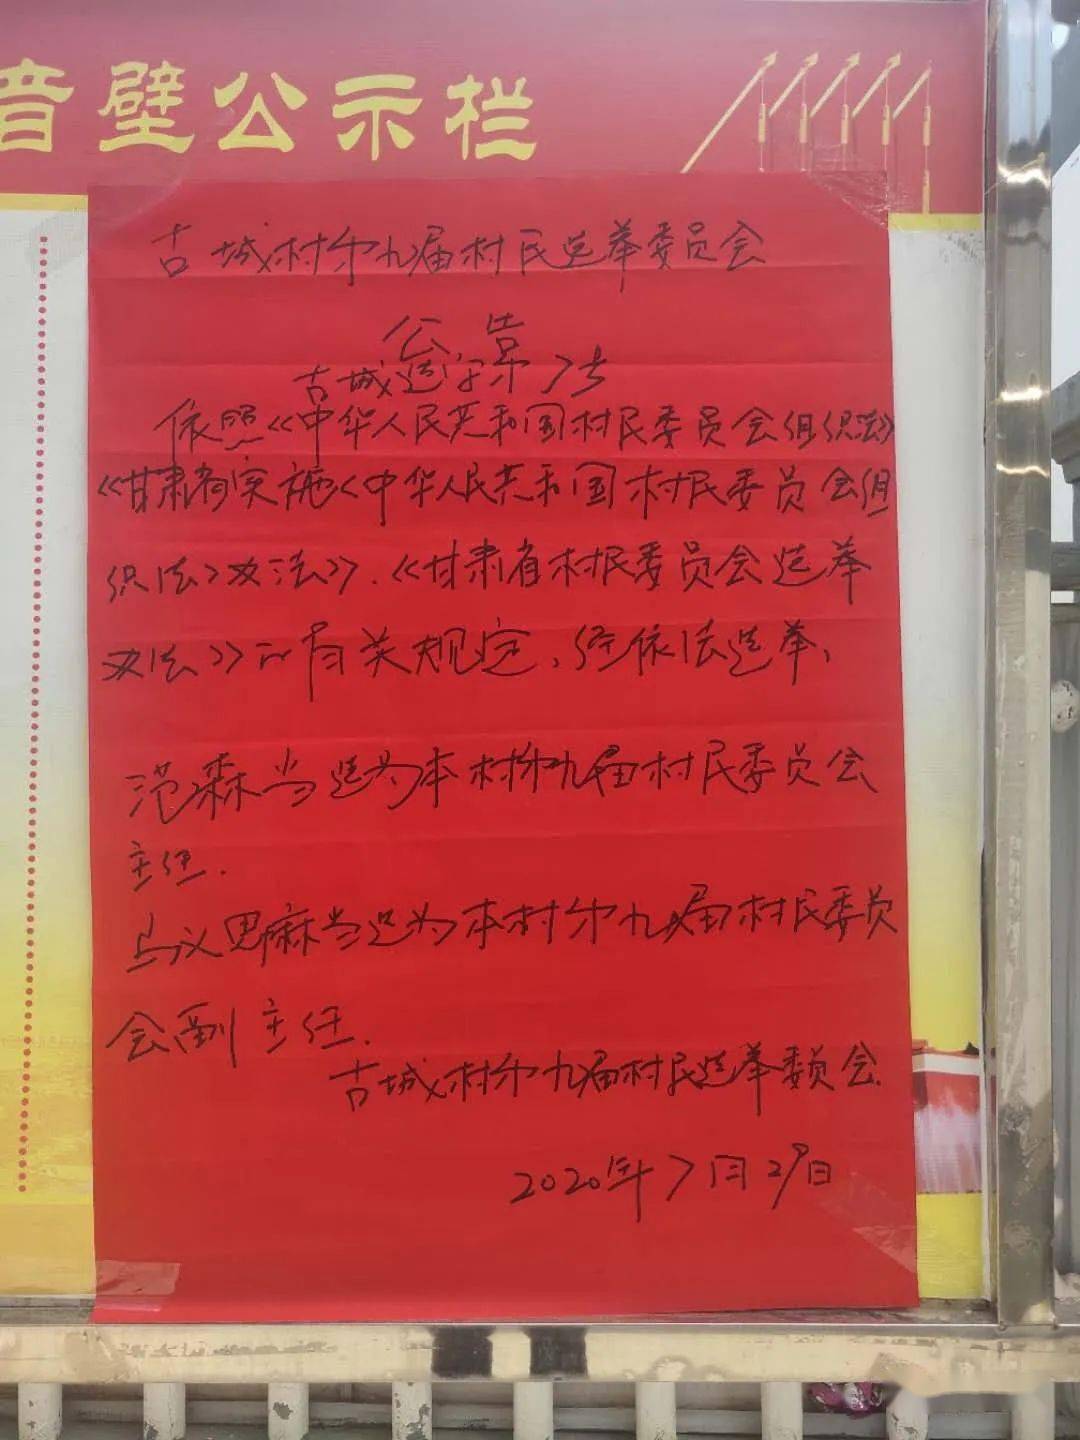 音壁公示栏
古城村第九届村民选举委员会
公告
古城选字第7号
依照《中华人民共和国村民委员会组织法》
《甘肃省实施<中华人民共和国村民委员会组
织法>办法》、《甘肃省村民委员会选举
办法》的有关规定,经依法选举,
范森当选为本村第九届村民委员会
主任.
马义思麻当选为本村第九届村民委员
会副主任.
古城村第九届村民选举委员会
2020年7月29日